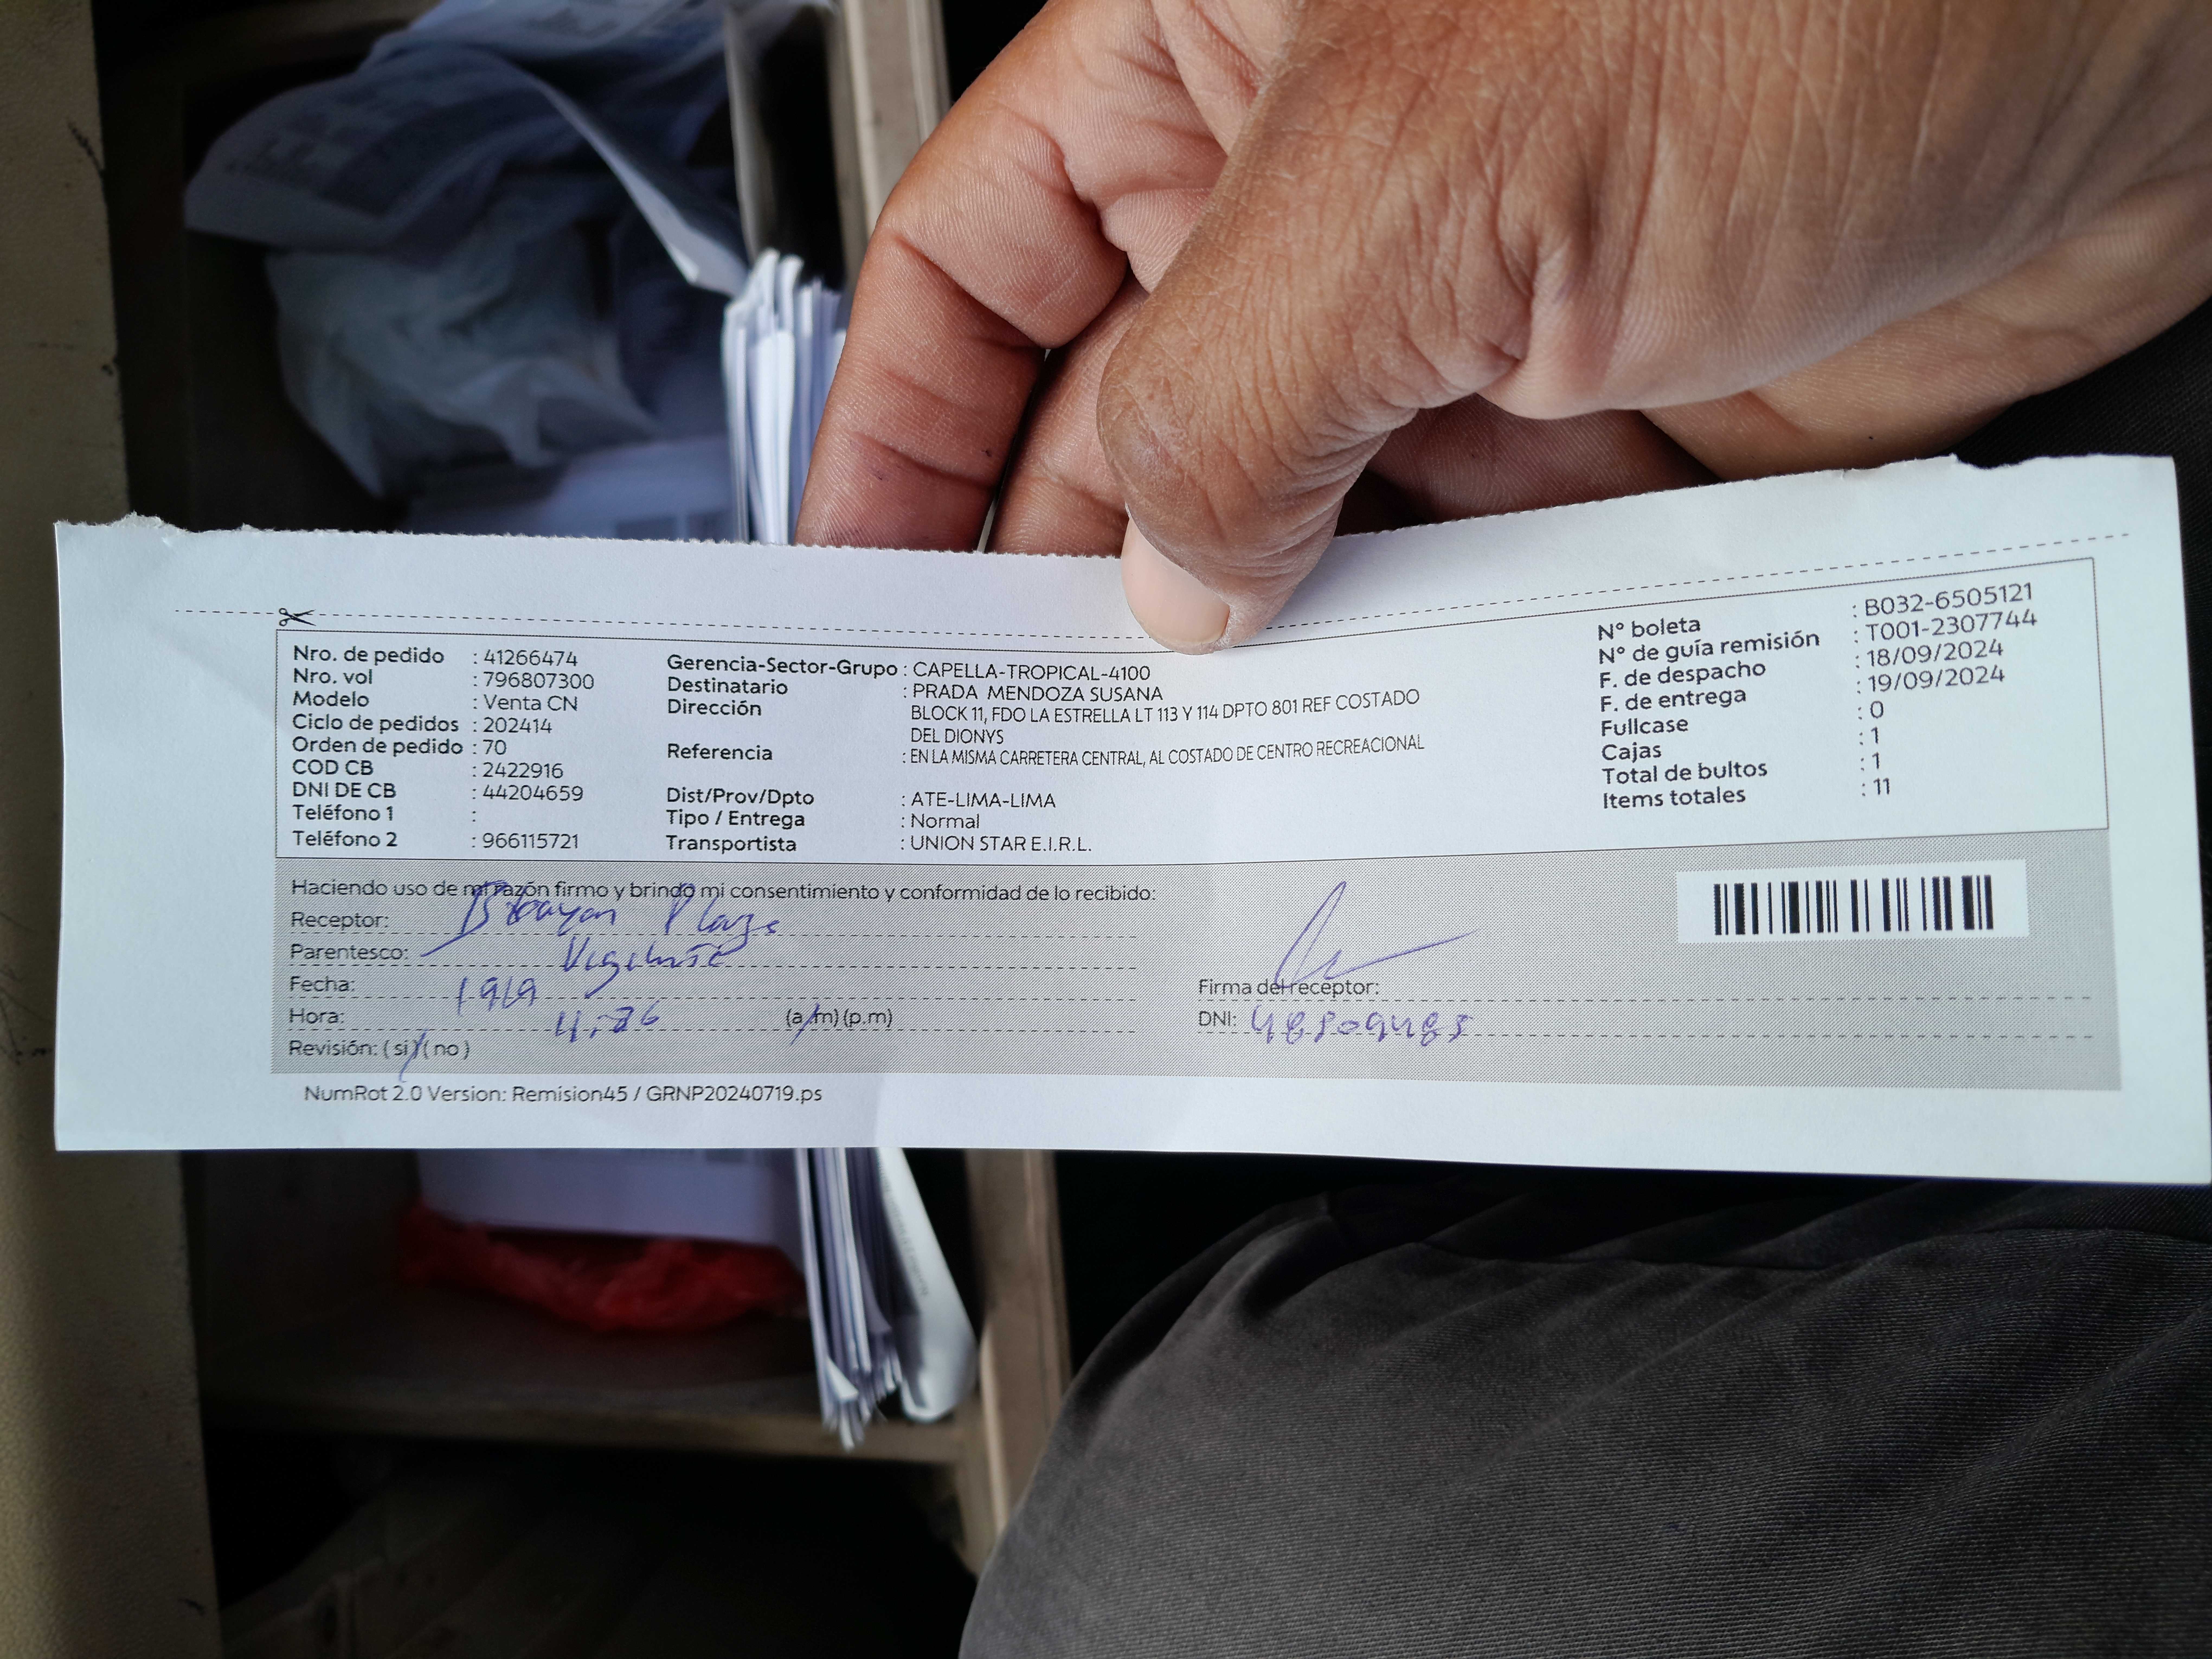 Nro. de pedido : 41266474
Nro. vol : 796807300
Modelo : Venta CN
Ciclo de pedidos : 202414
Orden de pedido : 70
COD CB : 2422916
DNI DE CB : 44204659
Teléfono 1 :
Teléfono 2 : 966115721
Gerencia-Sector-Grupo : CAPELLA-TROPICAL-4100
Destinatario : PRADA MENDOZA SUSANA
Dirección BLOCK 11, FDO LA ESTRELLA LT 113 Y 114 DPTO 801 REF COSTADO
DEL DIONYS
Referencia : EN LA MISMA CARRETERA CENTRAL, AL COSTADO DE CENTRO RECREACIONAL
Dist/Prov/Dpto : ATE-LIMA-LIMA
Tipo / Entrega : Normal
Transportista : UNION STAR E.I.R.L.
N° boleta : B032-6505121
N° de guía remisión : T001-2307744
F. de despacho : 18/09/2024
F. de entrega : 19/09/2024
Fullcase : 0
Cajas : 1
Total de bultos : 1
Items totales : 11
Haciendo uso de mi razón firmo y brindo mi consentimiento y conformidad de lo recibido:
Receptor:
Parentesco:
Fecha: 19/9
Hora: (a.m) (p.m)
Revisión: ( si ) ( no )
Firma del receptor:
DNI:
NumRot 2.0 Version: Remision45 / GRNP20240719.ps